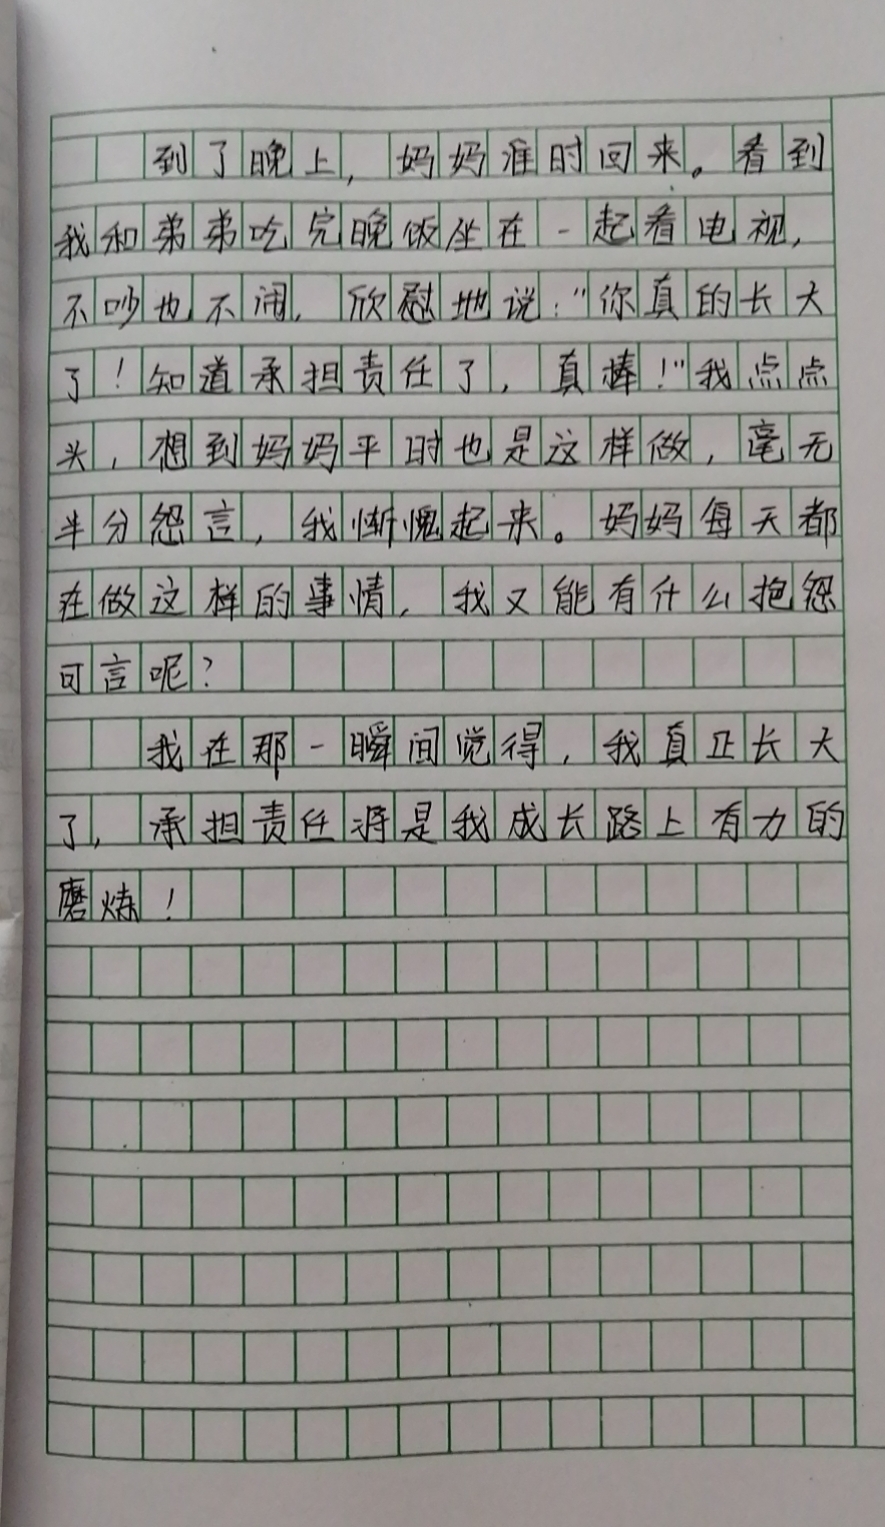 到了晚上，妈妈准时回来。看到
我和弟弟吃完晚饭坐在一起看电视，
不吵也不闹，欣慰地说："你真的长大
了！知道承担责任了，真棒！"我点点
头，想到妈妈平时也是这样做，毫无
半分怨言，我惭愧起来。妈妈每天都
在做这样的事情，我又能有什么抱怨
可言呢？
我在那一瞬间觉得，我真正长大
了，承担责任将是我成长路上有力的
磨炼！